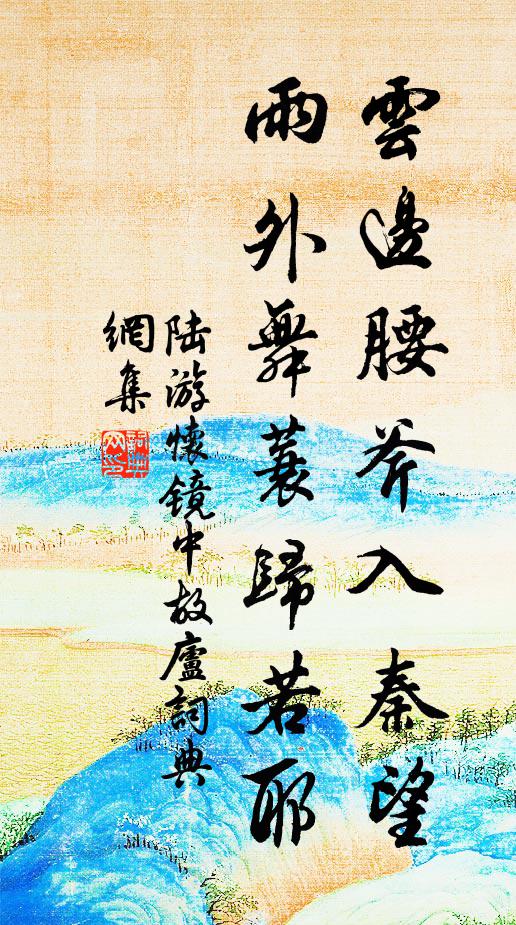 雲邊腰斧入秦望
雨外舞蓑歸若耶
陆游懷鏡中故廬詞典
網集